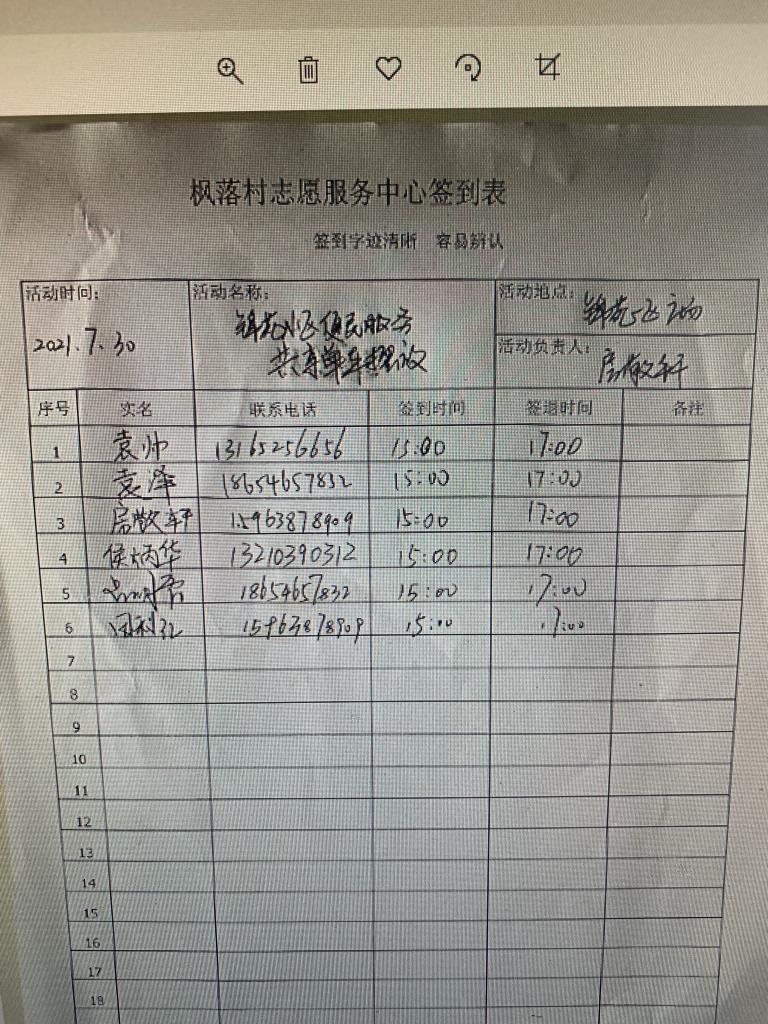 枫落村志愿服务中心签到表
签到字迹清晰 容易辨认
活动时间： 活动名称： 活动地点：
锦苑小区便民服务 锦苑小区
2021.7.30 共享单车摆放 活动负责人：
序号 实名 联系电话 签到时间 签退时间 备注
1 袁帅 13165256656 15:00 17:00
2 袁泽 18654657832 15:00 17:00
3 15963878909 15:00 17:00
4 侯炳华 13210390312 15:00 17:00
5 18654657832 15:00 17:00
6 15963878909 15:00 17:00
7
8
9
10
11
12
13
14
15
16
17
18